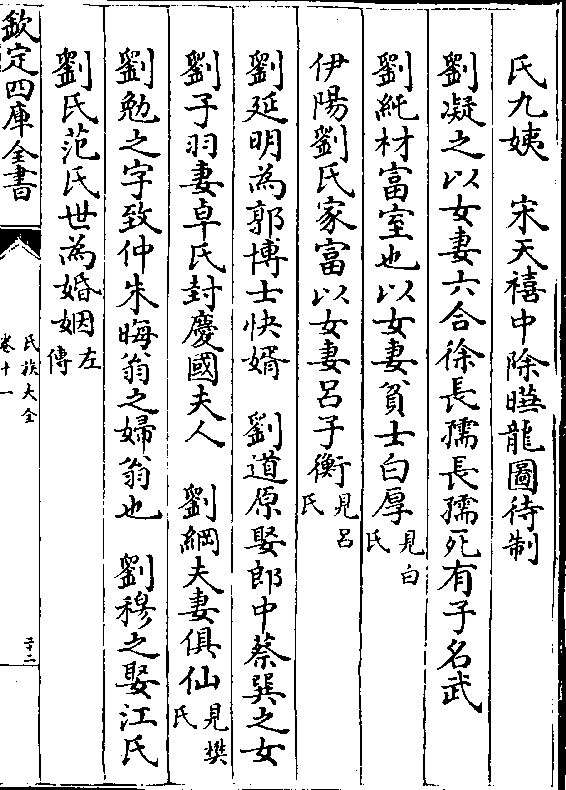 氏九姨　宋天禧中除曕龍圖待制
劉凝之以女妻六合徐長孺長孺死有子名武
劉純材富室也以女妻貧士白厚見白氏
伊陽劉氏家富以女妻呂子衡見呂氏
劉延明為郭博士快婿　劉道原娶郎中蔡巽之女
劉子羽妻卓氏封慶國夫人　劉綱夫妻俱仙見樊氏
劉勉之字致仲朱晦翁之婦翁也　劉穆之娶江氏
劉氏范氏世為婚姻左傳
欽定四庫全書
氏族大全
卷十一
二十二